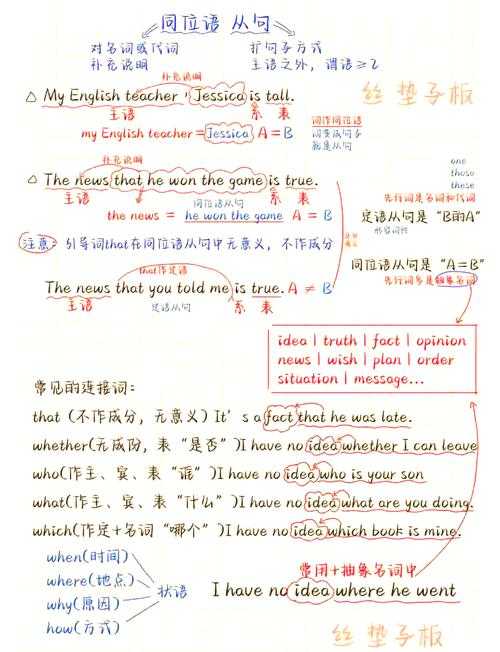 同位语 从句
对名词或代词
补充说明
扩句子方式
主语之外，谓语≥2
补充说明
△ My English teacher, Jessica is tall.
主语 系 表
my English teacher = Jessica A = B
词作同位语
词变成句子
就是从句
丝 垫子板
补充说明
△ The news that he won the game is true.
主语 同位语从句 系 表
the news = he won the game A = B
注意: 引导词that在同位语从句中无意义，不作成分
one
those
these
先行词是名词和代词
定语从句是 "B的A"
形容词性
同位语从句是 "A=B"
先行词多是抽象名词
that作宾语
The news that you told me is true. A ≠ B
主语 定语从句 系 表
idea | truth | fact | opinion
news | wish | plan | order
situation | message...
常见的连接词:
that (不作成分，无意义) It's a fact that he was late.
whether(无成份，表"是否")I have no idea whether I can leave
who(作主、宾、表"谁")I have no idea who is your son
what(作主、宾、表"什么")I have no idea what are you doing.
which(作定+名词"哪个")I have no idea which book is mine.
when(时间)
where(地点)
why(原因)
how(方式)
状语
常用+抽象名词中
I have no idea where he went
丝 垫子板